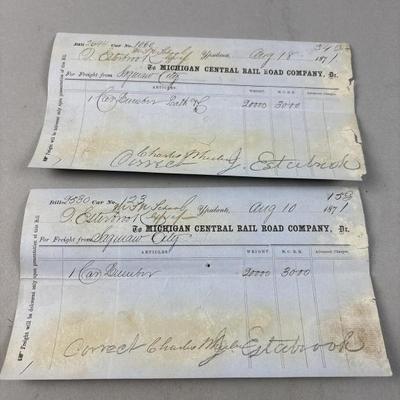 Bill 2694 Car No. 1060 34 50
J. Esterbrook Ypsilanti, Aug 18 1871
To MICHIGAN CENTRAL RAIL ROAD COMPANY, Dr.
For Freight from Saginaw City
ARTICLES. WEIGHT. M. C. R. R. Advanced Charges.
1 Car Lumber Lath 20000 3000
Correct Charles Wheeler J. Estabrook
Freight will be delivered only upon presentation of this Bill
Bill 2530 Car No. 123 15
J. Esterbrook Ypsilanti, Aug 10 1871
To MICHIGAN CENTRAL RAIL ROAD COMPANY, Dr.
For Freight from Saginaw City
ARTICLES. WEIGHT. M. C. R. R. Advanced Charges.
1 Car Lumber 20000 3000
Correct Charles Wheeler J. Estabrook
Freight will be delivered only upon presentation of this Bill